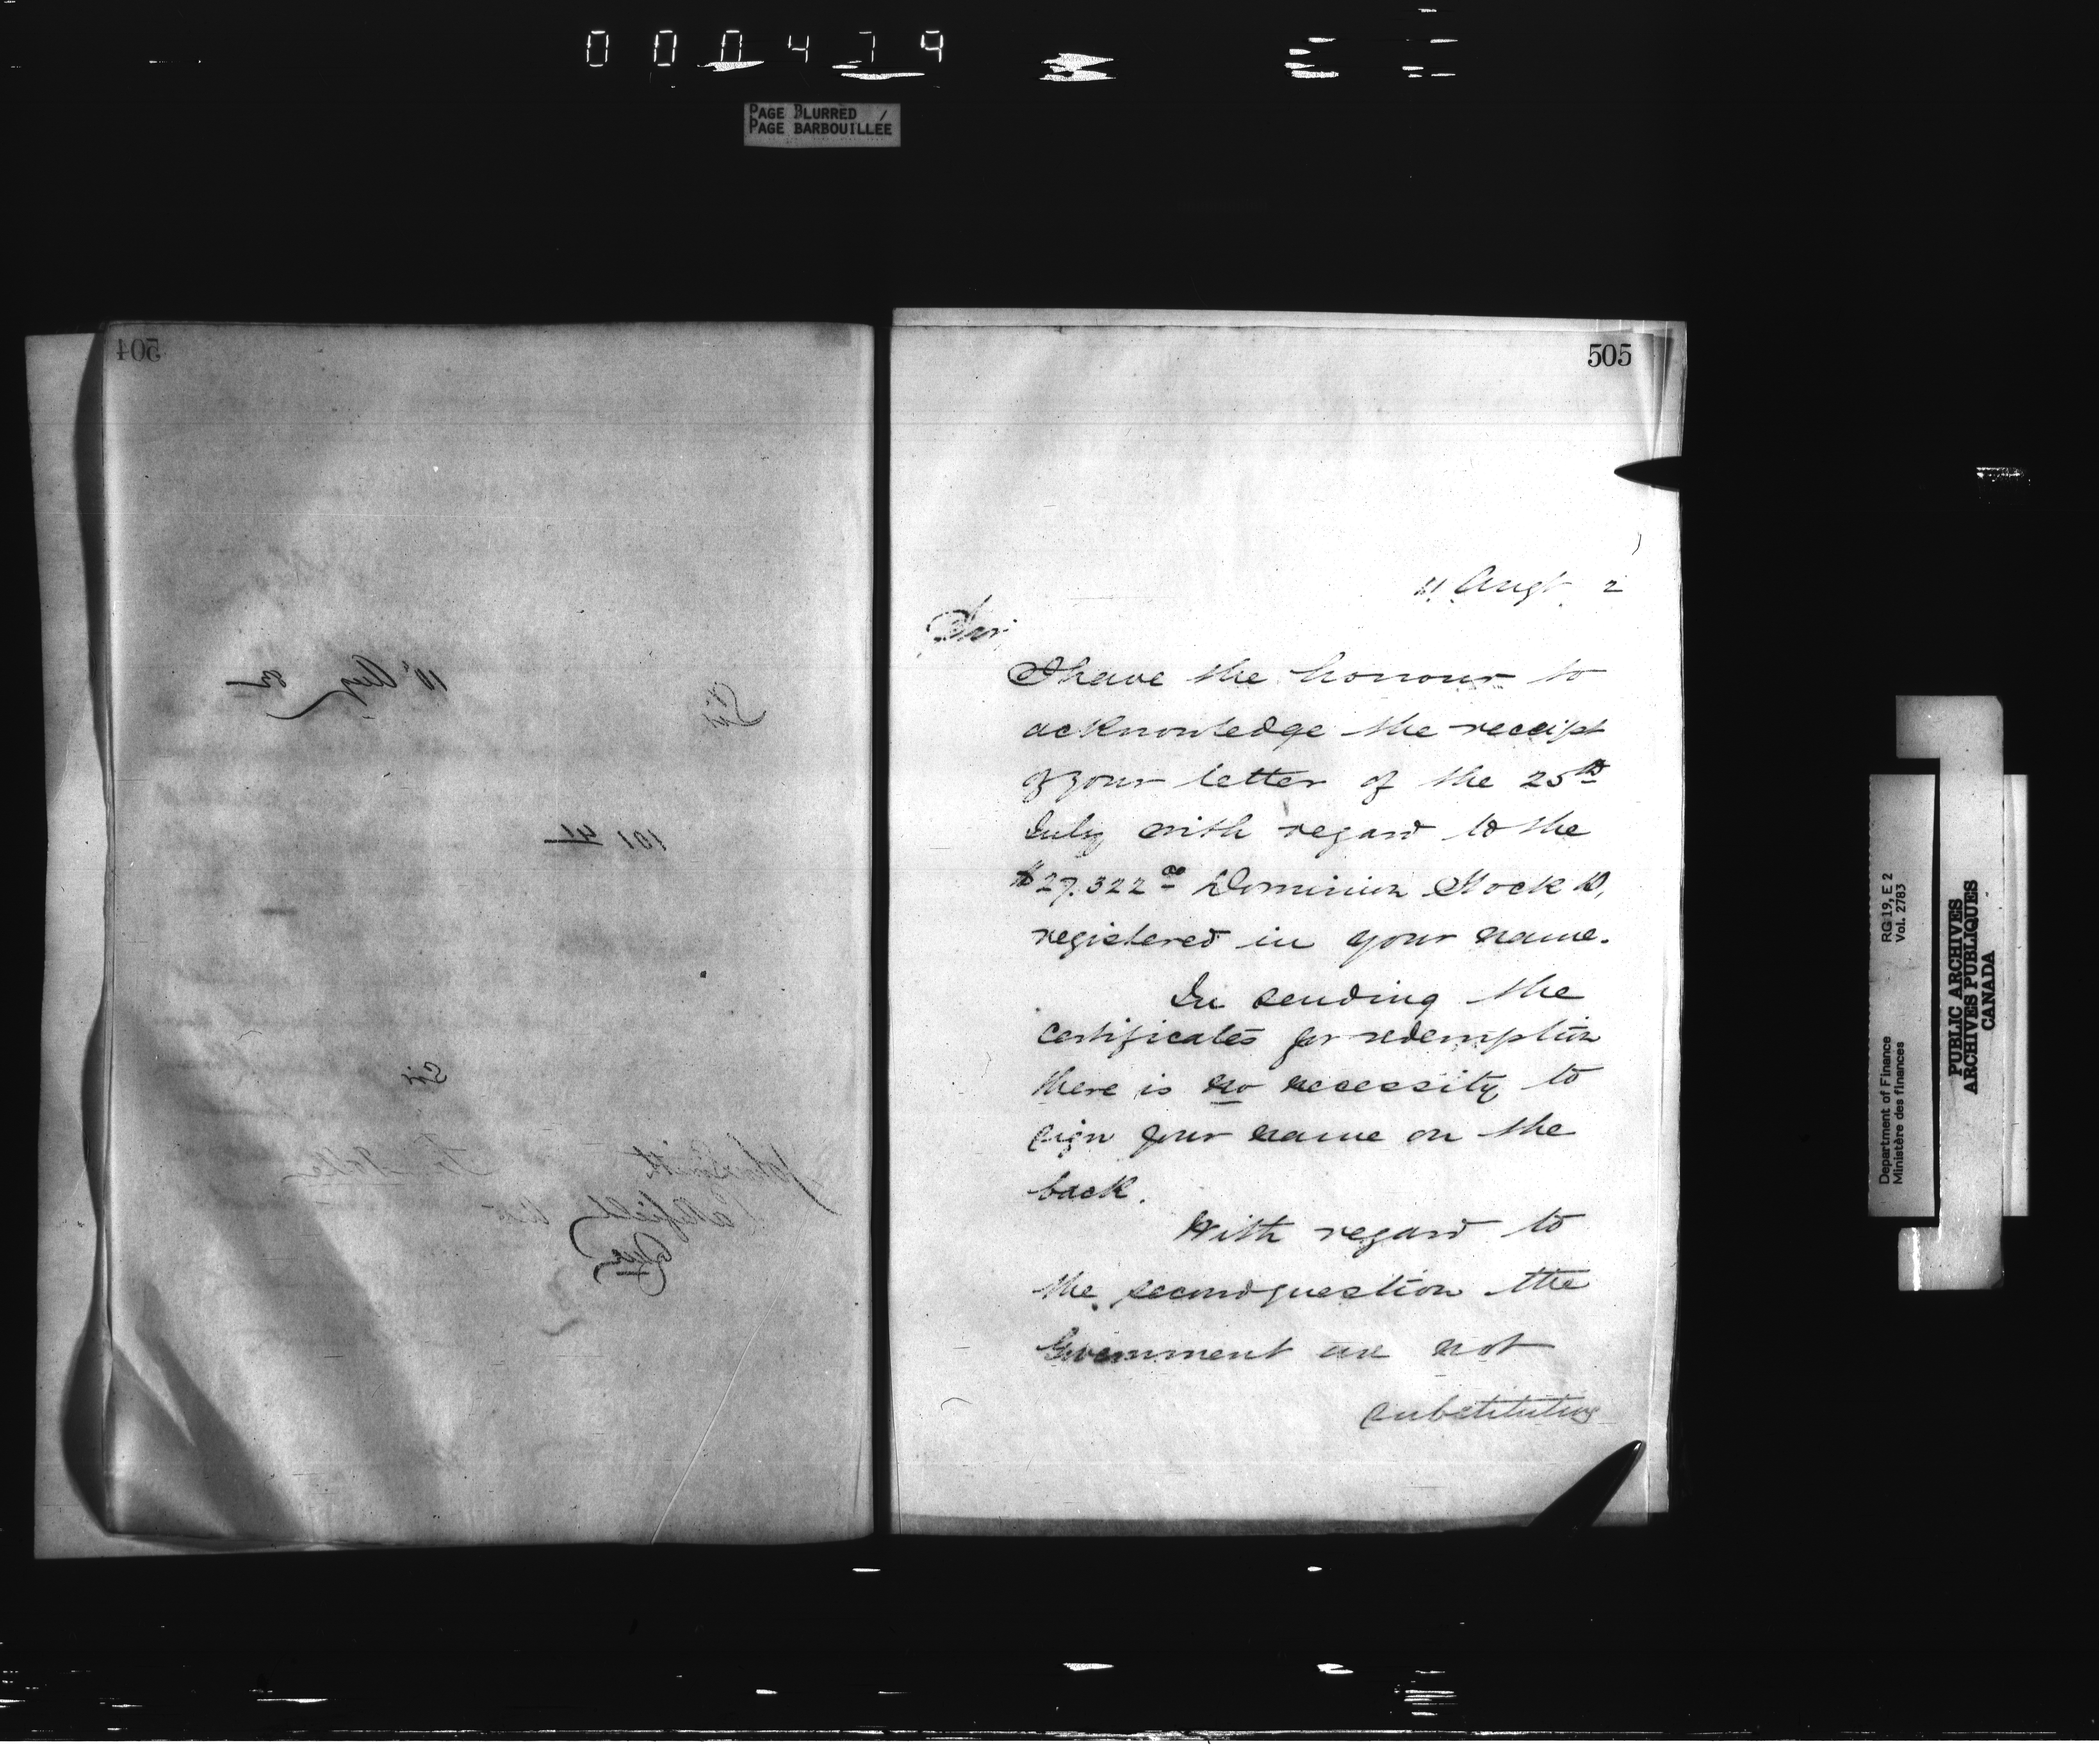 000479
PAGE BLURRED /
PAGE BARBOUILLÉE
504
10 Aug 82
Sir
101 41
Sir
John Smith
505
11 Augt 2
Sir,
I have the honour to
acknowledge the receipt
of your letter of the 25th
July with regard to the
$27.322 00 Dominion Stock D,
registered in your name.
In sending the
certificates for redemption
there is no necessity to
sign your name on the
back.
With regard to
the second question the
Government are not
substituting
Department of Finance
Ministère des finances
RG 19, E 2
Vol. 2783
PUBLIC ARCHIVES
ARCHIVES PUBLIQUES
CANADA